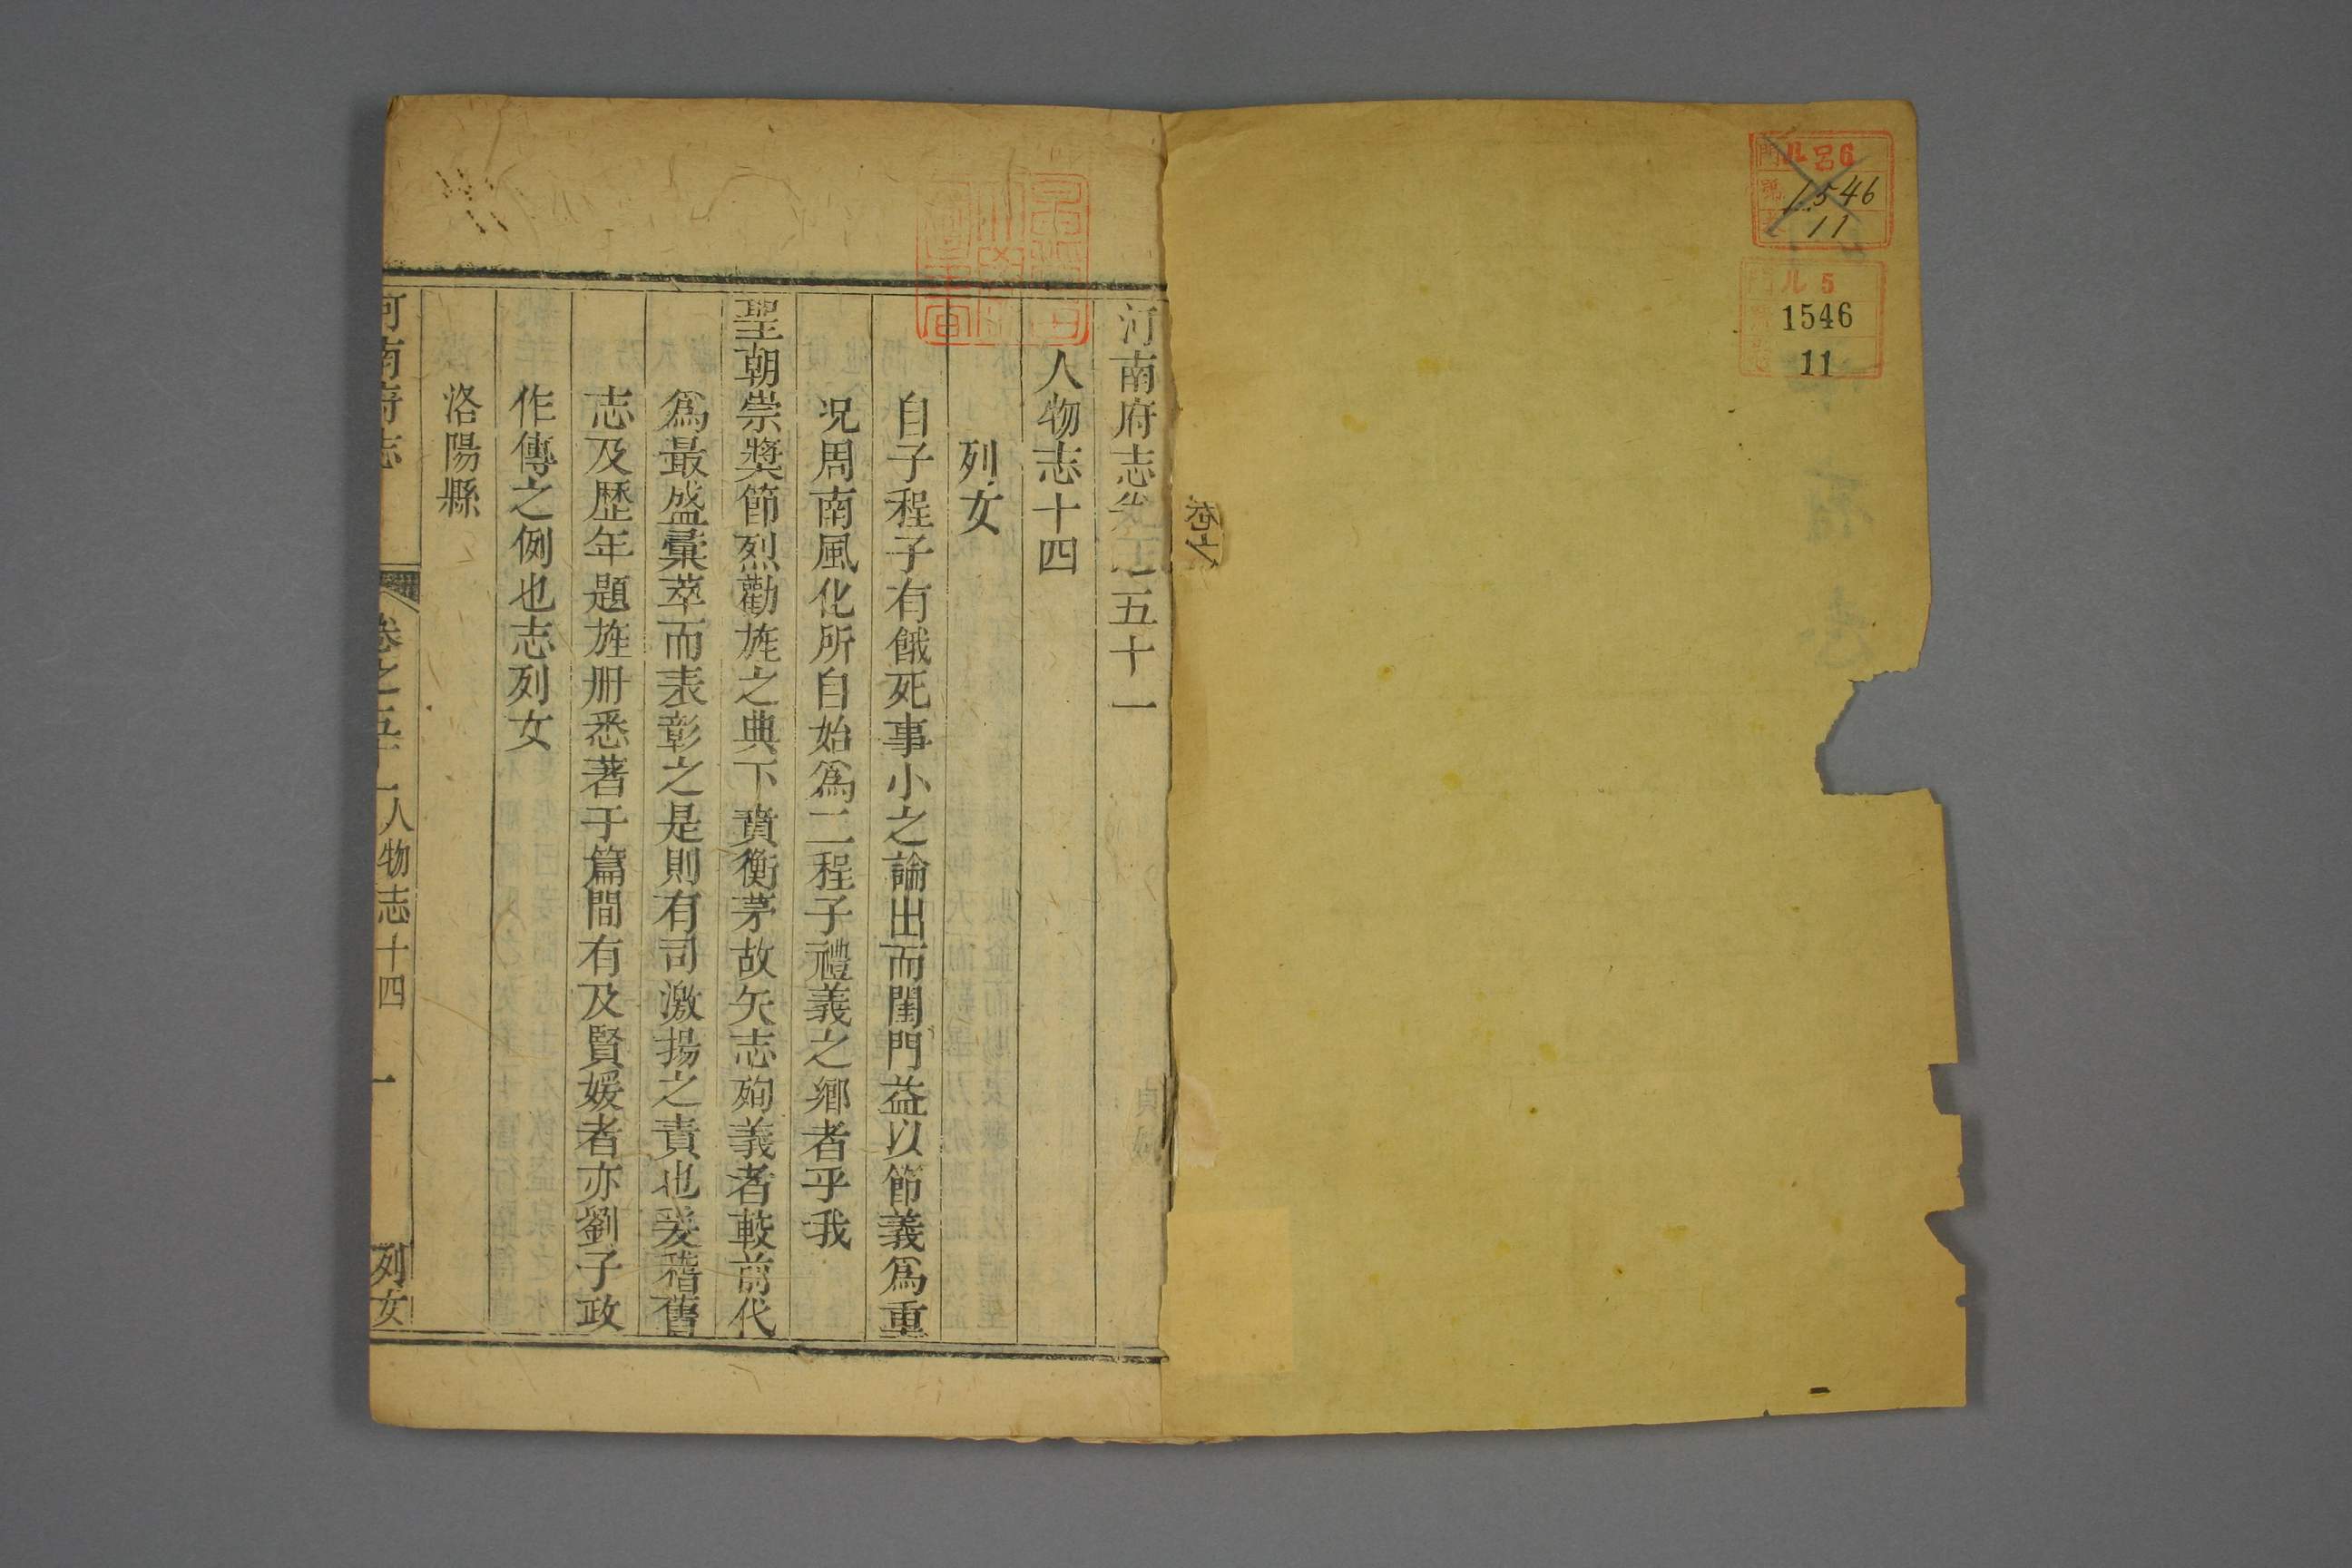 門 ル 呂6
號 1546
11
門 ル 5
1546
11
河南府志卷之五十一
人物志十四
列女
自子程子有餓死事小之論出而閨門益以節義爲重
况周南風化所自始爲二程子禮義之鄉者乎我
聖朝崇獎節烈勸旌之典下賁衡茅故矢志殉義者較前代
爲最盛彙萃而表彰之是則有司激揚之責也爰稽舊
志及歷年題旌册悉著于篇間有及賢媛者亦劉子政
作傳之例也志列女
洛陽縣
河南府志
卷之五十一 人物志十四 一 列女